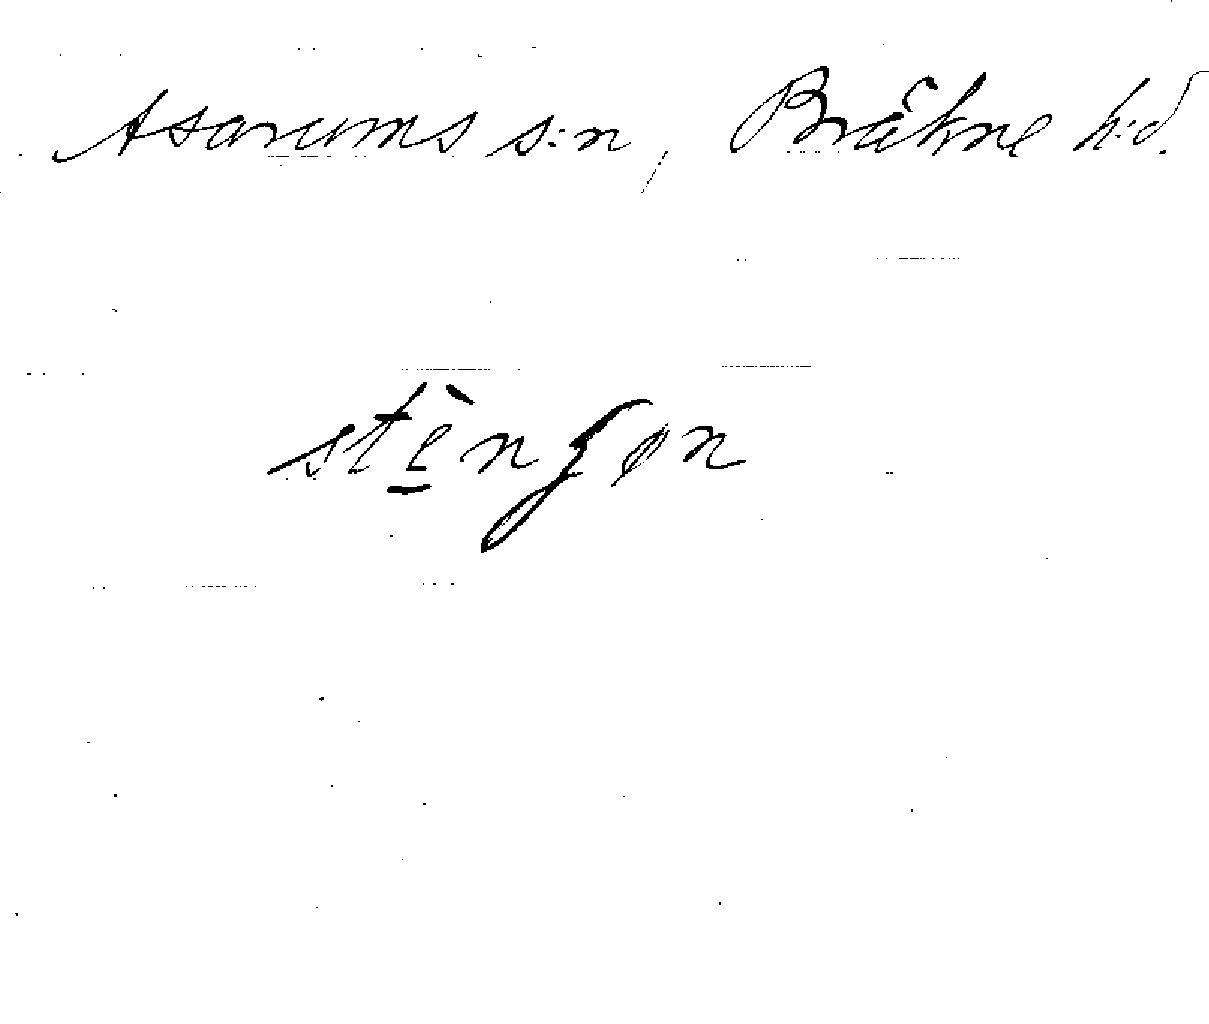 Asarums s:n, Bräkne h:d.
stè̱nʒøn